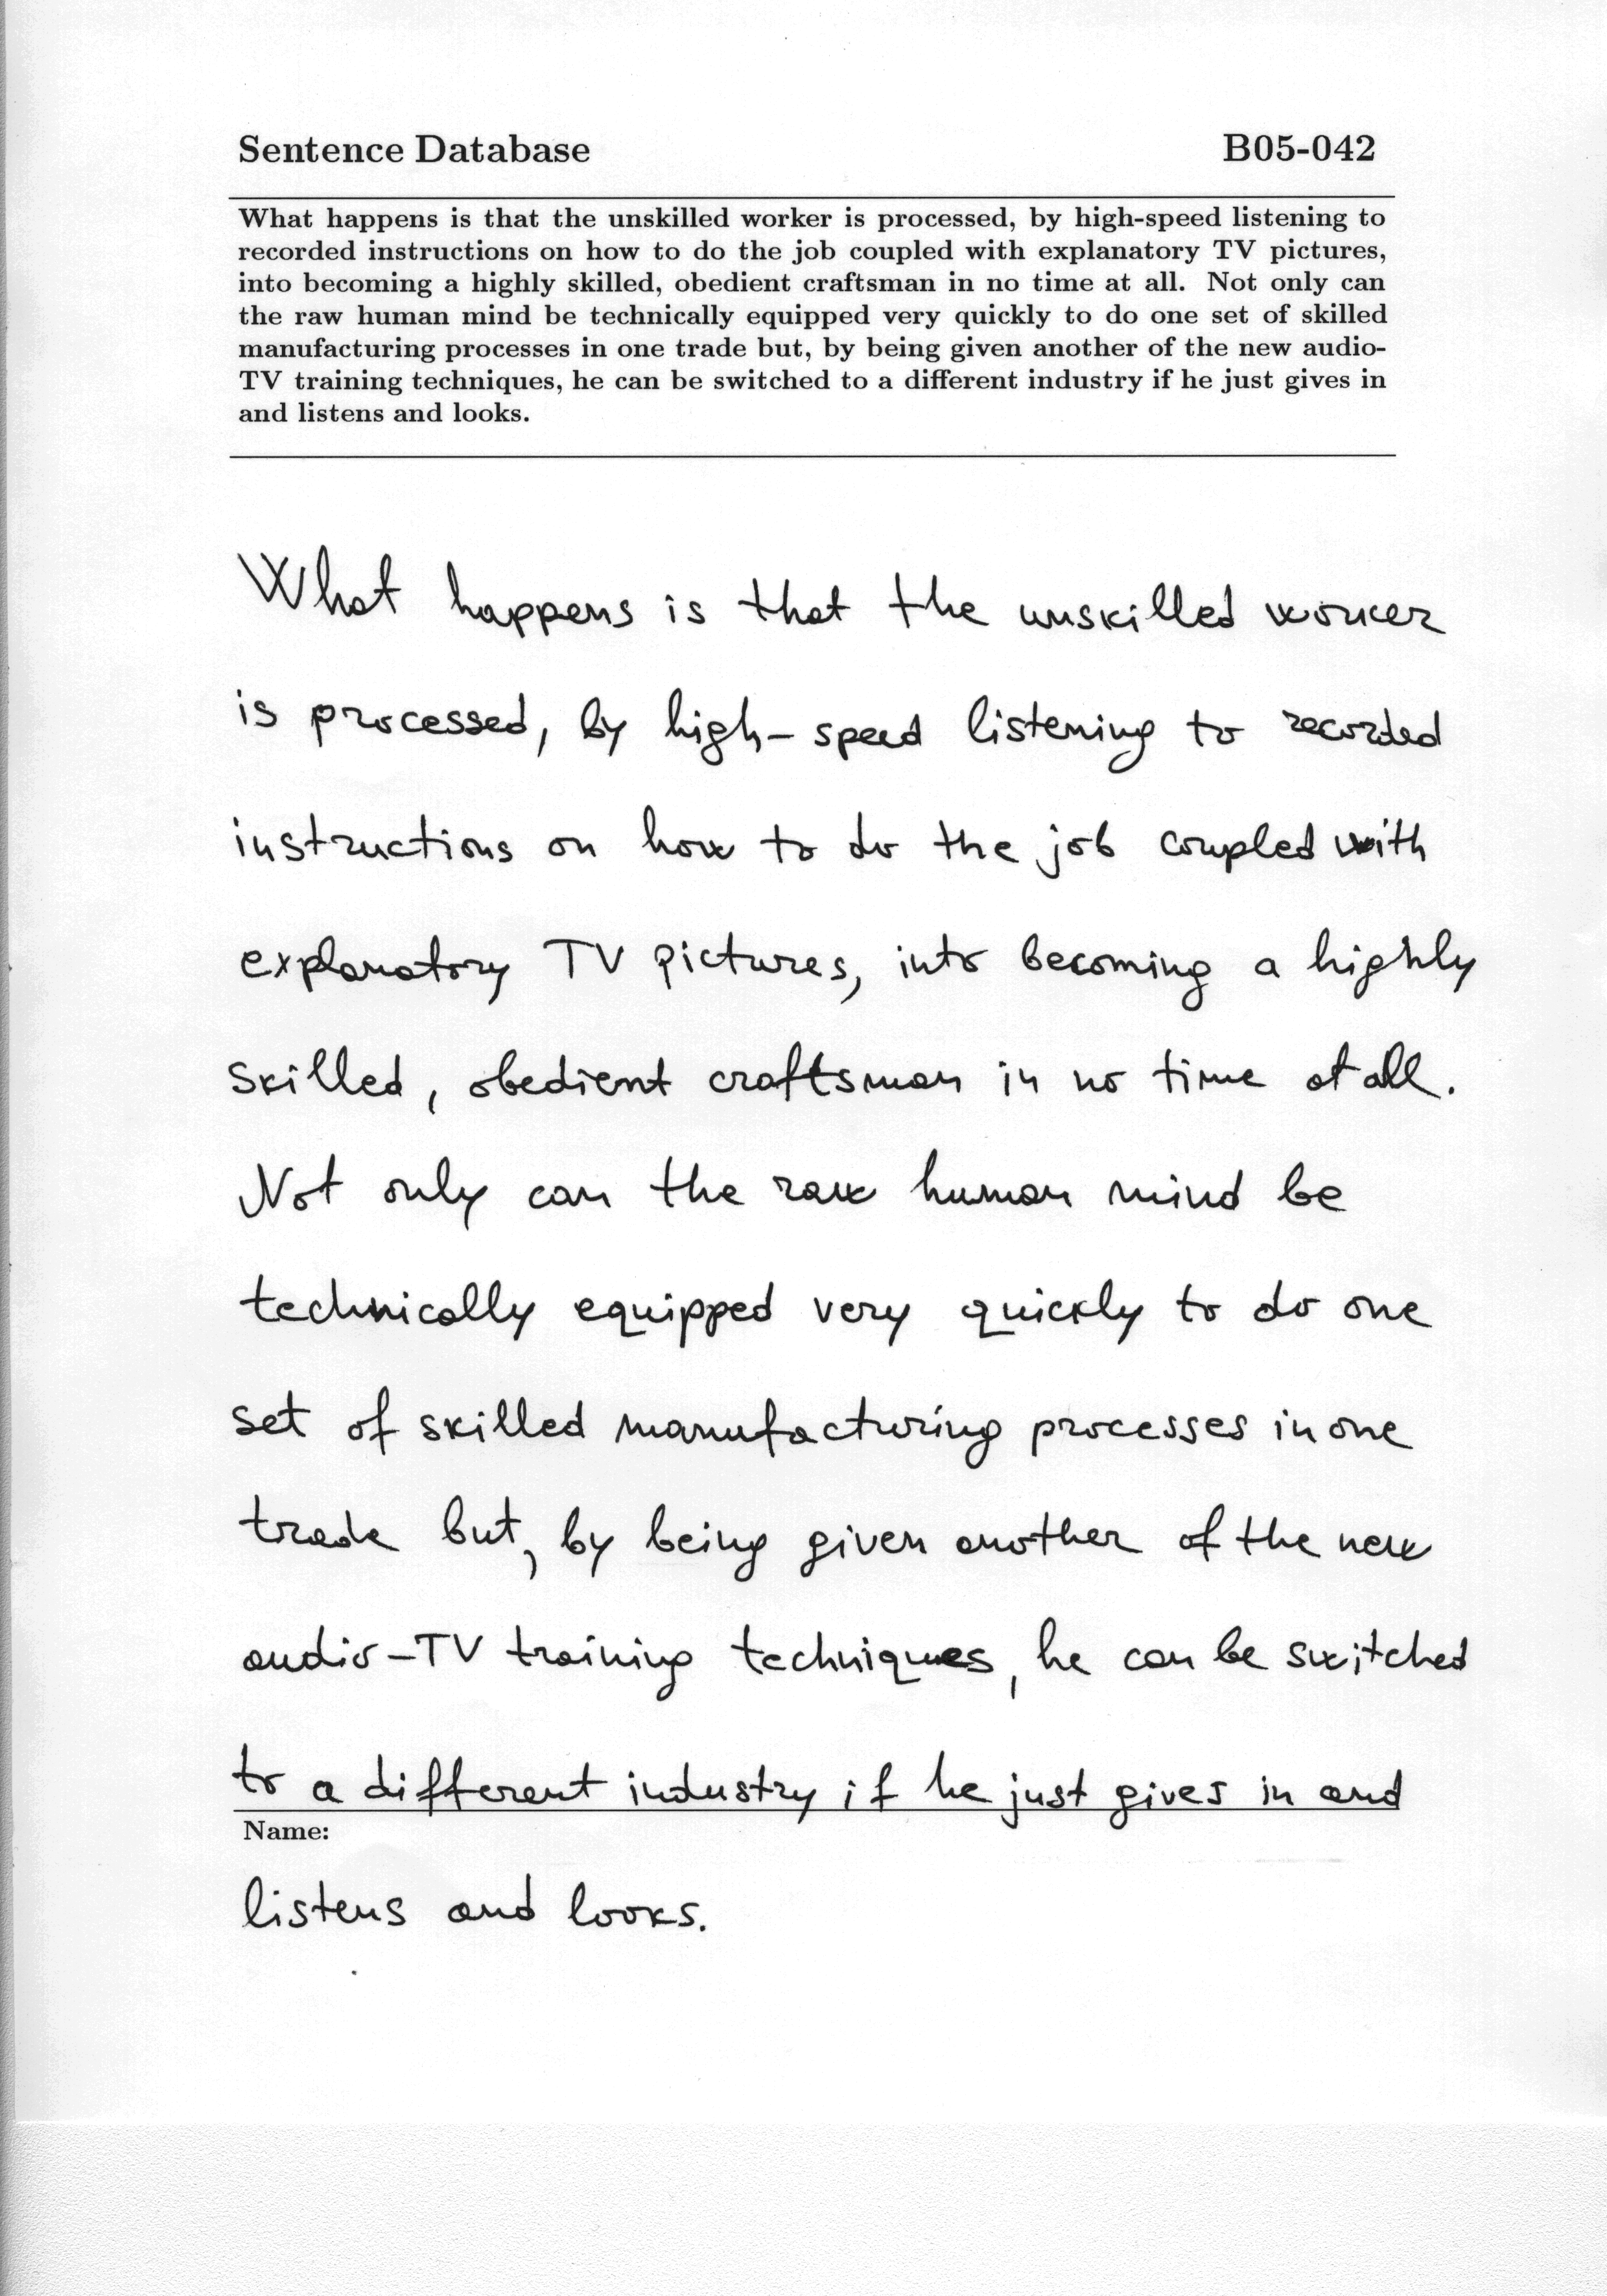 Sentence Database B05-042
What happens is that the unskilled worker is processed, by high-speed listening to
recorded instructions on how to do the job coupled with explanatory TV pictures,
into becoming a highly skilled, obedient craftsman in no time at all. Not only can
the raw human mind be technically equipped very quickly to do one set of skilled
manufacturing processes in one trade but, by being given another of the new audio-
TV training techniques, he can be switched to a different industry if he just gives in
and listens and looks.
What happens is that the unskilled worker
is processed, by high-speed listening to recorded
instructions on how to do the job coupled with
explanatory TV pictures, into becoming a highly
skilled, obedient craftsman in no time at all.
Not only can the raw human mind be
technically equipped very quickly to do one
set of skilled manufacturing processes in one
trade but, by being given another of the new
audio-TV training techniques, he can be switched
to a different industry if he just gives in and
Name:
listens and looks.